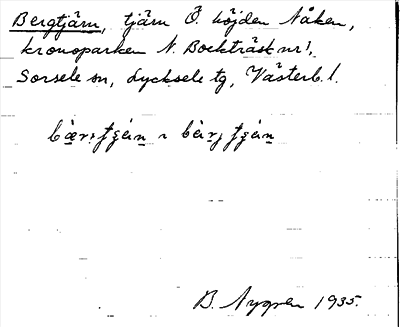 Bergtjärn, tjärn Ö. höjden Nåken,
kronoparken N. Bockträsk nr 1,
Sorsele sn, Lycksele tg, Västerb. l.
B. Nygren 1935.